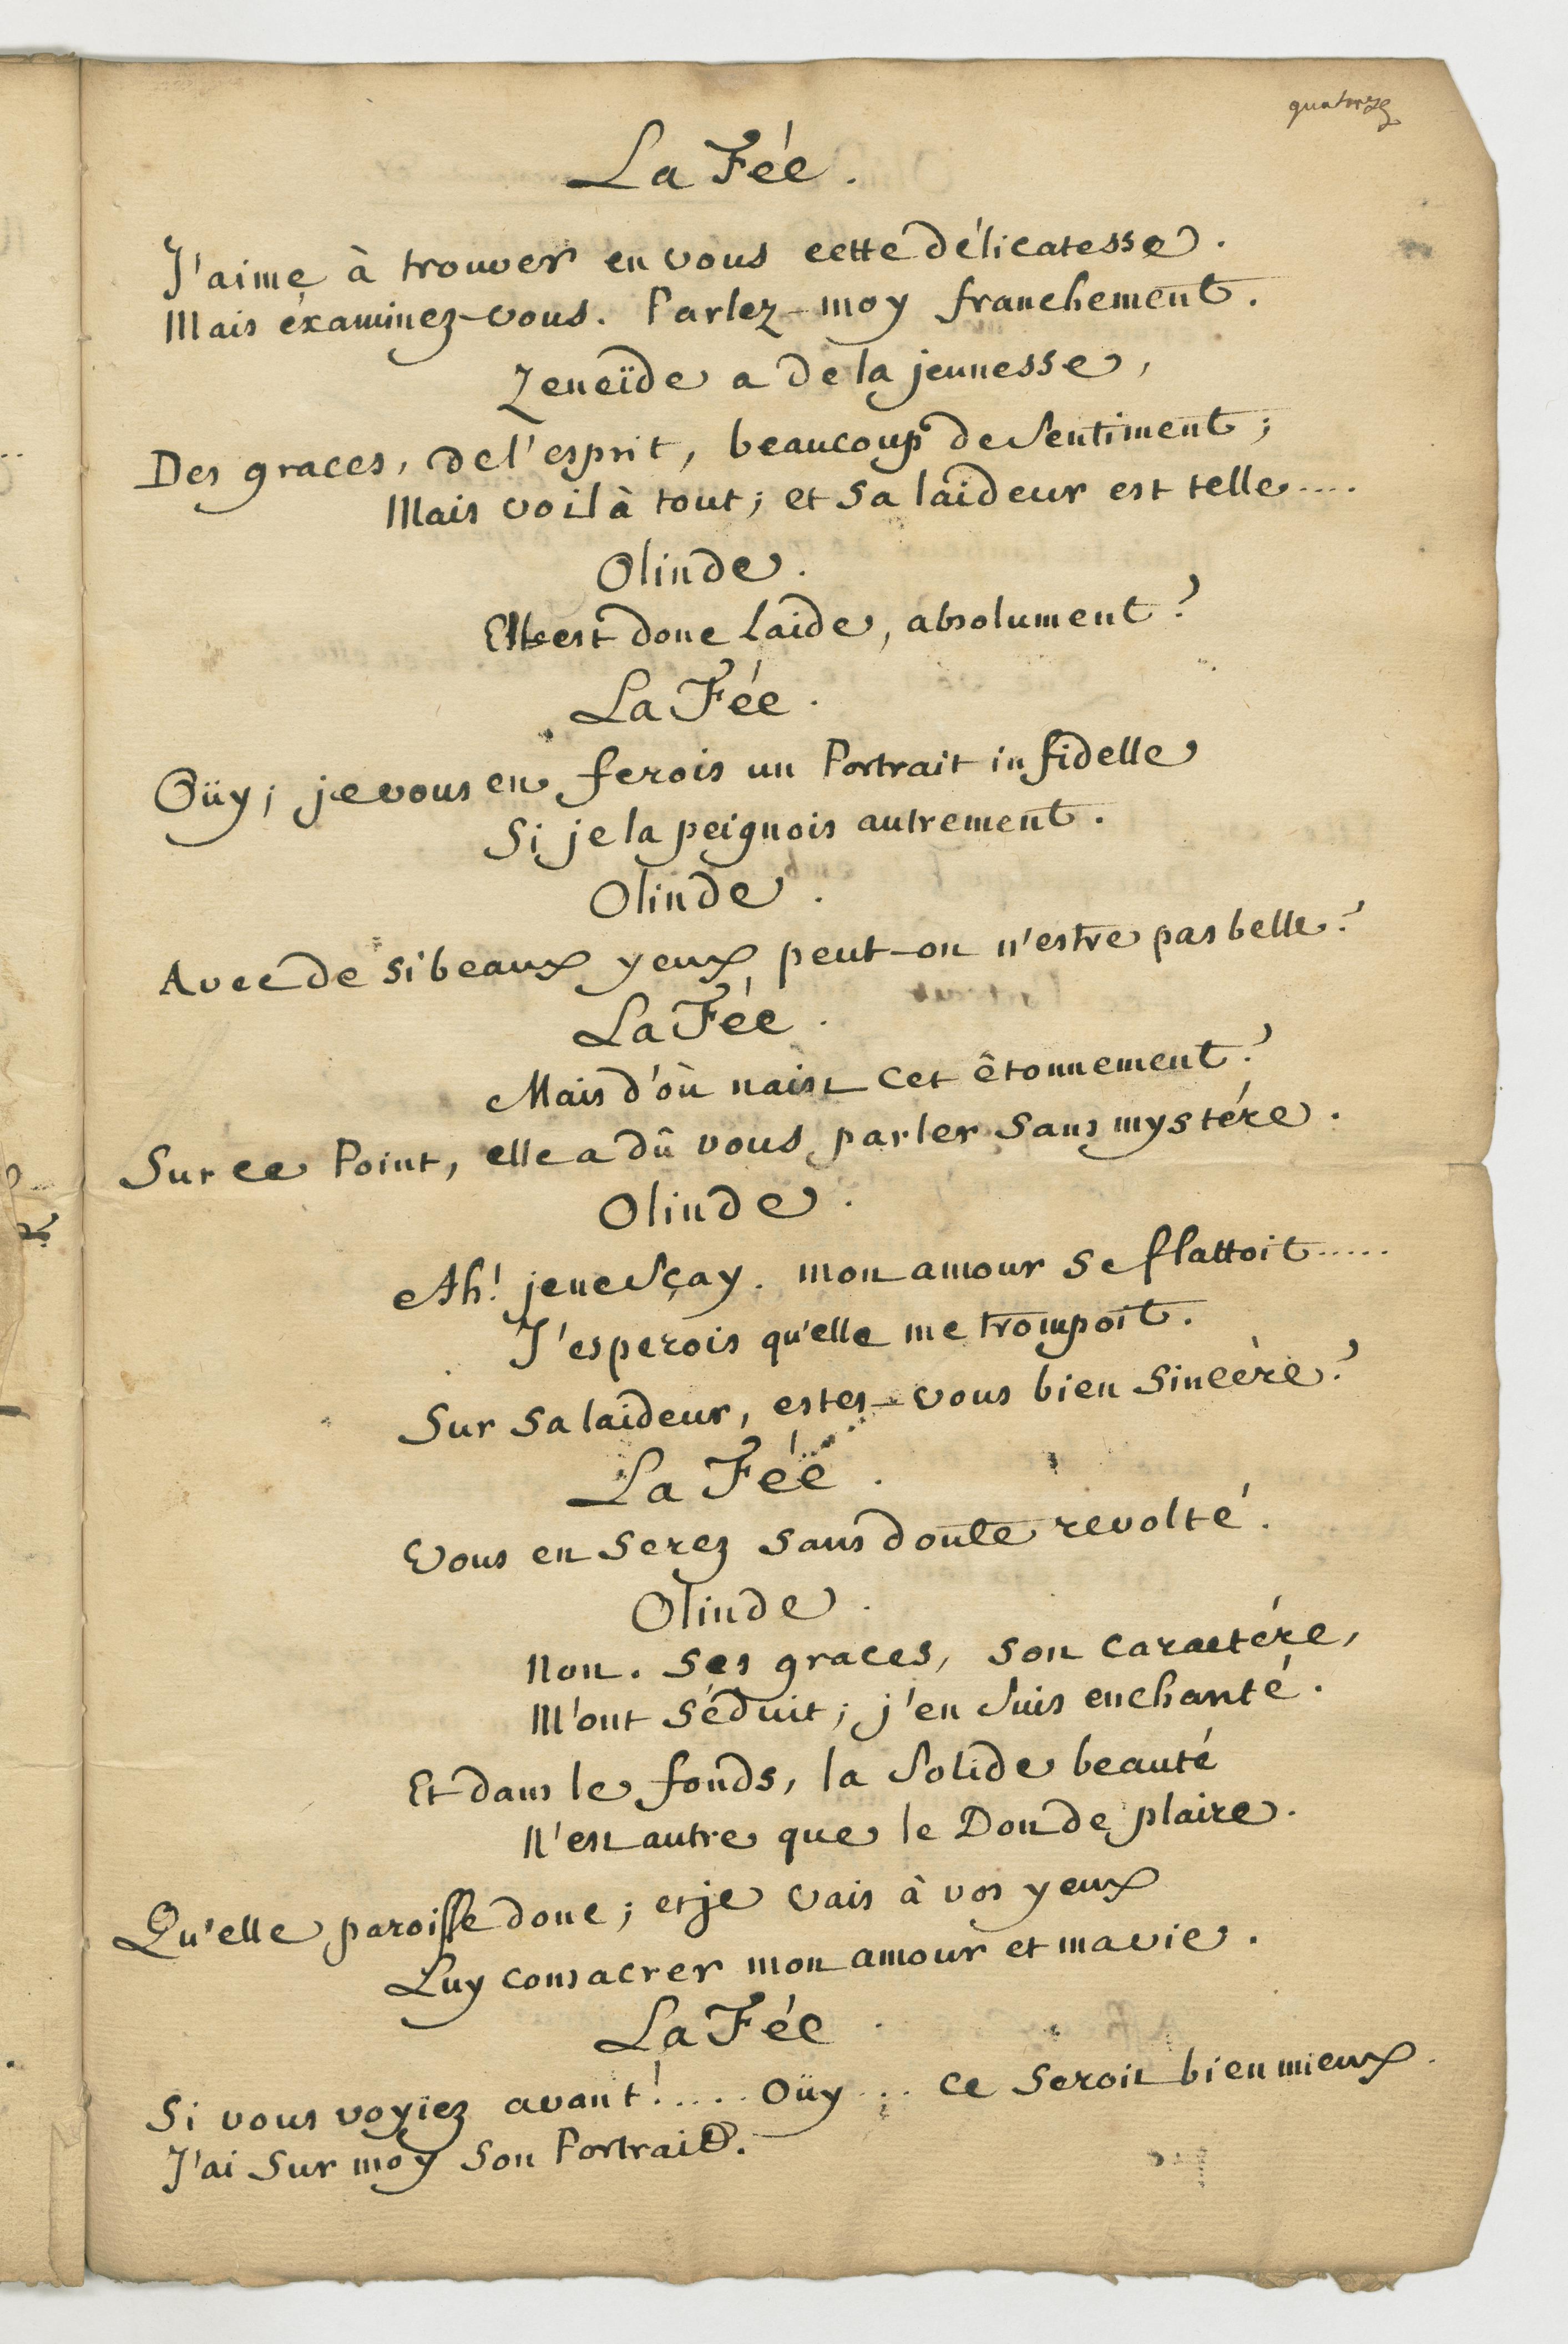 quatorze
La Fée.
J'aime à trouver en vous cette délicatesse.
Mais éxaminez-vous. Parlez-moy franchement.
Zeneïde a de la jeunesse,
Des graces, de l'esprit, beaucoup de sentiment;
Mais voilà tout; et sa laideur est telle....
Olinde.
Elle est donc laide, absolument?
La Fée.
Oüy; je vous en ferois un Portrait infidelle
Si je la peignois autrement.
Olinde.
Avec de si beaux yeux peut-on n'estre pas belle?
La Fée.
Mais d'où naist cet êtonnement?
Sur ce Point, elle a dû vous parler sans mystére.
Olinde.
Ah! je ne sçay. mon amour se flattoit.....
J'esperois qu'elle me trompoit.
Sur sa laideur, estes-vous bien sincère?
La Fée.
Vous en serez sans doute revolté.
Olinde.
Non. Ses graces, son caractére,
M'ont séduit; j'en suis enchanté.
Et dans le fonds, la solide beauté
N'est autre que le Don de plaire.
Qu'elle paroisse donc; et je vais à vos yeux
Luy consacrer mon amour et ma vie.
La Fée.
Si vous voyiez avant!..... Oüy... ce seroit bien mieux.
J'ai sur moy son Portrait.